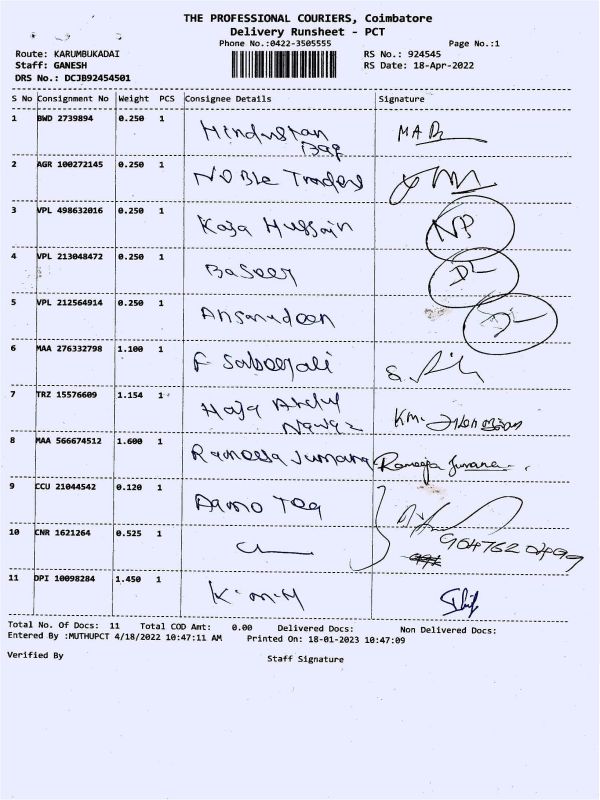 THE PROFESSIONAL COURIERS, Coimbatore
Delivery Runsheet - PCT
Phone No.:0422-3505555 Page No.:1
Route: KARUMBUKADAI RS No.: 924545
Staff: GANESH RS Date: 18-Apr-2022
DRS No.: DCJB92454501
S No Consignment No Weight PCS Consignee Details Signature
1 BWD 2739894 0.250 1 Hindustan
Bag
2 AGR 100272145 0.250 1 Noble Traders
3 VPL 498632016 0.250 1 Kaja Hussain NP
4 VPL 213048472 0.250 1 Baseer DL
5 VPL 212564914 0.250 1 Ansarudeen DL
6 MAA 276332798 1.100 1 F Saboorali
7 TRZ 15576609 1.154 1 Haja Abdul
Nawaz KM.
8 MAA 566674512 1.600 1 Rameesa Jumana
9 CCU 21044542 0.120 1 Damo Tea
10 CNR 1621264 0.525 1
11 DPI 10098284 1.450 1 K.M.H
Total No. Of Docs: 11 Total COD Amt: 0.00 Delivered Docs: Non Delivered Docs:
Entered By :MUTHUPCT 4/18/2022 10:47:11 AM Printed On: 18-01-2023 10:47:09
Verified By Staff Signature